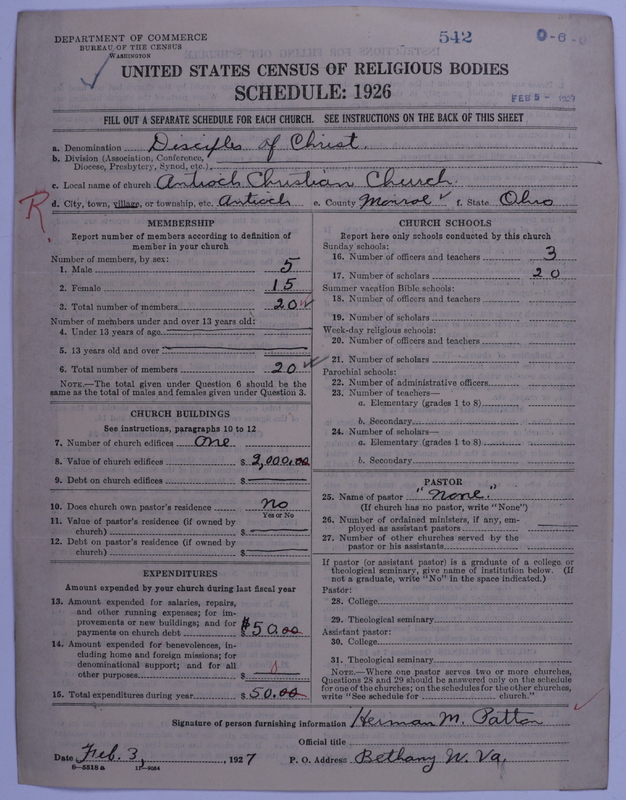 DEPARTMENT OF COMMERCE
BUREAU OF THE CENSUS
WASHINGTON
542
0-6-
UNITED STATES CENSUS OF RELIGIOUS BODIES
SCHEDULE: 1926
FEB 5 - 1927
FILL OUT A SEPARATE SCHEDULE FOR EACH CHURCH. SEE INSTRUCTIONS ON THE BACK OF THIS SHEET
a. Denomination Disciples of Christ.
b. Division (Association, Conference, Diocese, Presbytery, Synod, etc.)
c. Local name of church Antioch Christian Church
R.
d. City, town, village, or township, etc. Antioch e. County Monroe f. State Ohio
MEMBERSHIP
Report number of members according to definition of
member in your church
Number of members, by sex:
1. Male 5
2. Female 15
3. Total number of members 20
Number of members under and over 13 years old:
4. Under 13 years of age
5. 13 years old and over
6. Total number of members 20
NOTE.—The total given under Question 6 should be the
same as the total of males and females given under Question 3.
CHURCH BUILDINGS
See instructions, paragraphs 10 to 12
7. Number of church edifices one
8. Value of church edifices $ 2,000.00
9. Debt on church edifices $
10. Does church own pastor's residence no
Yes or No
11. Value of pastor's residence (if owned by
church) $
12. Debt on pastor's residence (if owned by
church) $
EXPENDITURES
Amount expended by your church during last fiscal year
13. Amount expended for salaries, repairs,
and other running expenses; for im-
provements or new buildings; and for
payments on church debt $50.00
14. Amount expended for benevolences, in-
cluding home and foreign missions; for
denominational support; and for all
other purposes $
15. Total expenditures during year $50.00
CHURCH SCHOOLS
Report here only schools conducted by this church
Sunday schools:
16. Number of officers and teachers 3
17. Number of scholars 20
Summer vacation Bible schools:
18. Number of officers and teachers
19. Number of scholars
Week-day religious schools:
20. Number of officers and teachers
21. Number of scholars
Parochial schools:
22. Number of administrative officers
23. Number of teachers—
a. Elementary (grades 1 to 8)
b. Secondary
24. Number of scholars—
a. Elementary (grades 1 to 8)
b. Secondary
PASTOR
25. Name of pastor "none."
(If church has no pastor, write "None")
26. Number of ordained ministers, if any, em-
ployed as assistant pastors
27. Number of other churches served by the
pastor or his assistants
If pastor (or assistant pastor) is a graduate of a college or
theological seminary, give name of institution below. (If
not a graduate, write "No" in the space indicated.)
Pastor:
28. College
29. Theological seminary
Assistant pastor:
30. College
31. Theological seminary
NOTE.—Where one pastor serves two or more churches,
Questions 28 and 29 should be answered only on the schedule
for one of the churches; on the schedules for the other churches,
write "See schedule for church."
Signature of person furnishing information Herman M. Patton
Official title
Date Feb. 3, 1927 P. O. Address Bethany W. Va.
8-5518a 11-9054